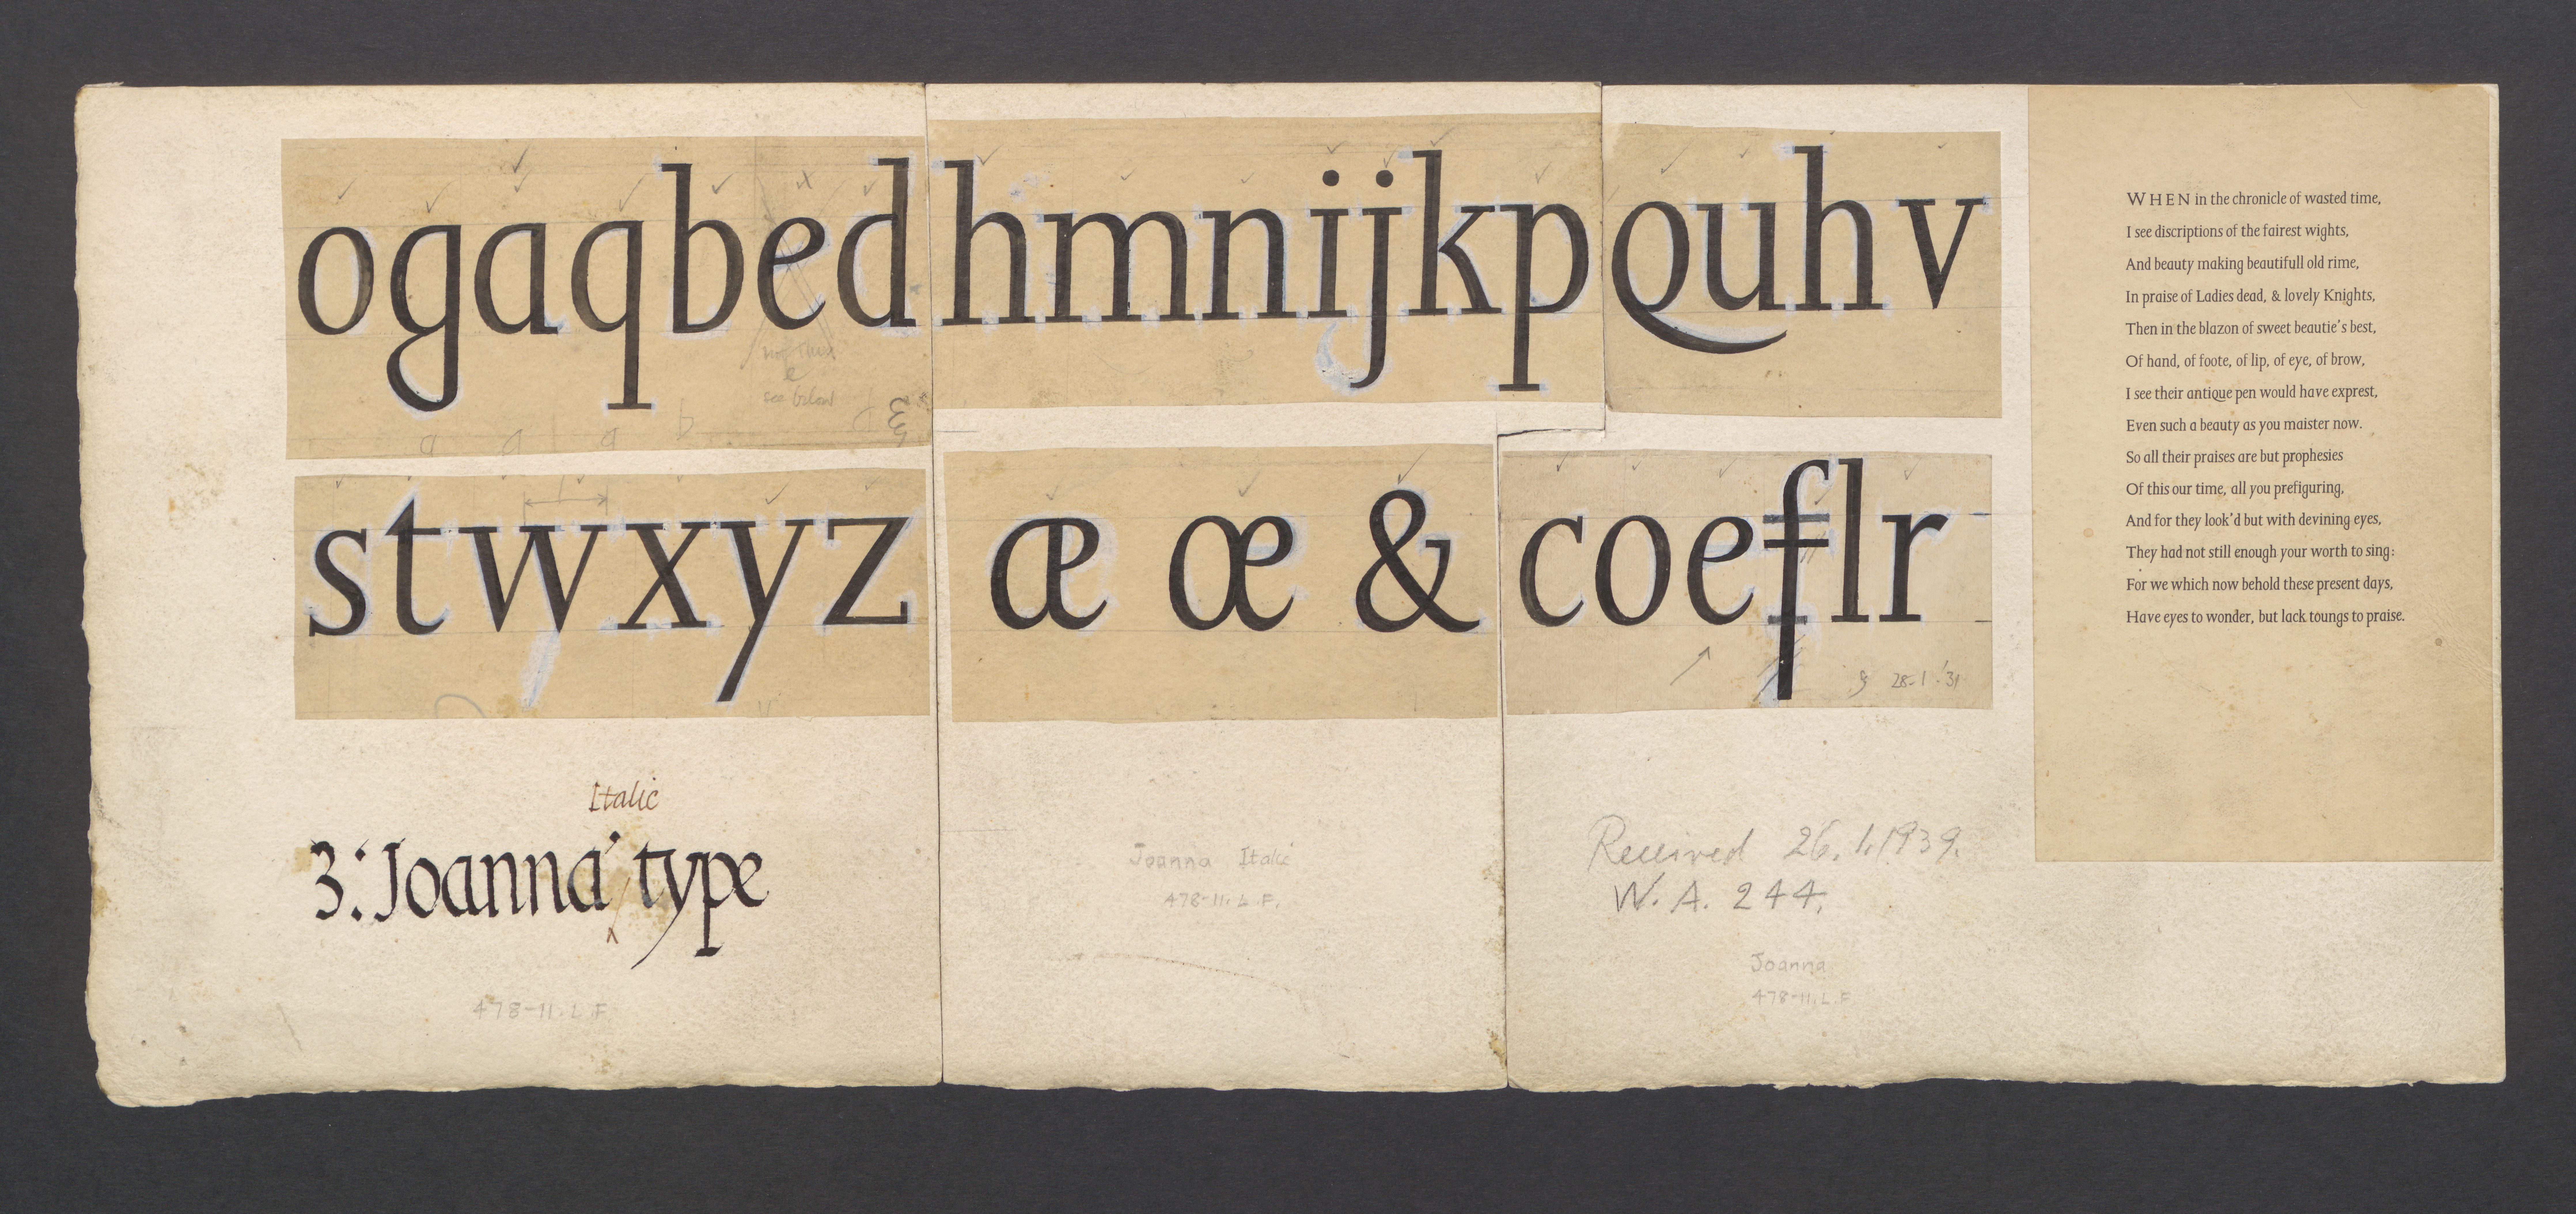 ogaqbedhmnijkpQuhv
not this
e
see below
stwxyz æ œ & coeflr
28-1-'31
Italic
3: 'Joanna' type
478-11. L. F.
Joanna Italic
478-11. L. F.
Received 26.1.1939.
W. A. 244.
Joanna
478-11. L. F.
WHEN in the chronicle of wasted time,
I see discriptions of the fairest wights,
And beauty making beautifull old rime,
In praise of Ladies dead, & lovely Knights,
Then in the blazon of sweet beautie's best,
Of hand, of foote, of lip, of eye, of brow,
I see their antique pen would have exprest,
Even such a beauty as you maister now.
So all their praises are but prophesies
Of this our time, all you prefiguring,
And for they look'd but with devining eyes,
They had not still enough your worth to sing:
For we which now behold these present days,
Have eyes to wonder, but lack toungs to praise.